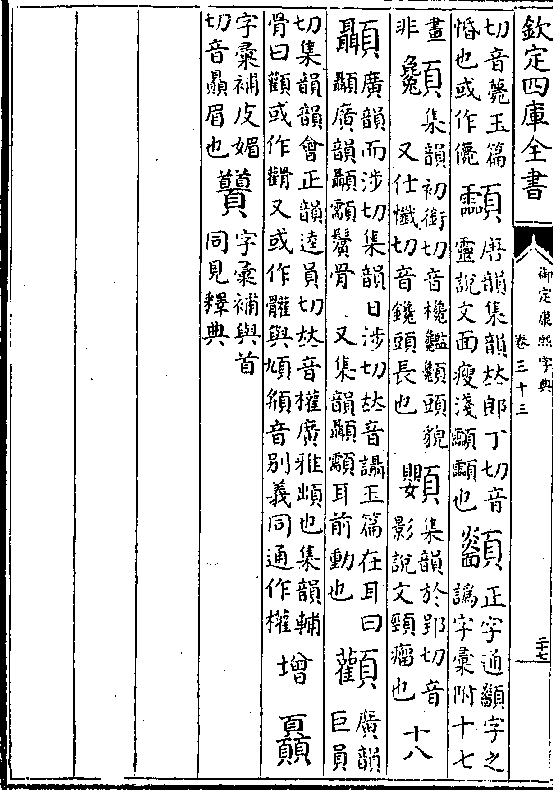 欽定四庫全書
御定康熙字典
卷三十三
二十七
切音薨玉篇
惛也或作儚
𩖊
唐韻集韻𠀤郎丁切音
靈說文面瘦淺𩖊𩖊也
正字通顲字之
譌字彙附十七
畫
非
集韻初銜切音欃頭貌
又仕懺切音鑱頭長也
集韻於郢切音
影說文頸瘤也
十八
顳
廣韻而涉切集韻日涉切𠀤音讘玉篇在耳曰
顳廣韻顳顬鬢骨 又集韻顳顬耳前動也
顴
廣韻
巨員
切集韻韻會正韻逵員切𠀤音權廣雅䪼也集韻輔
骨曰顴或作又或作與頄頯音別義同通作權
增
字彙補皮媚
切音眉也
字彙補與首
同見釋典